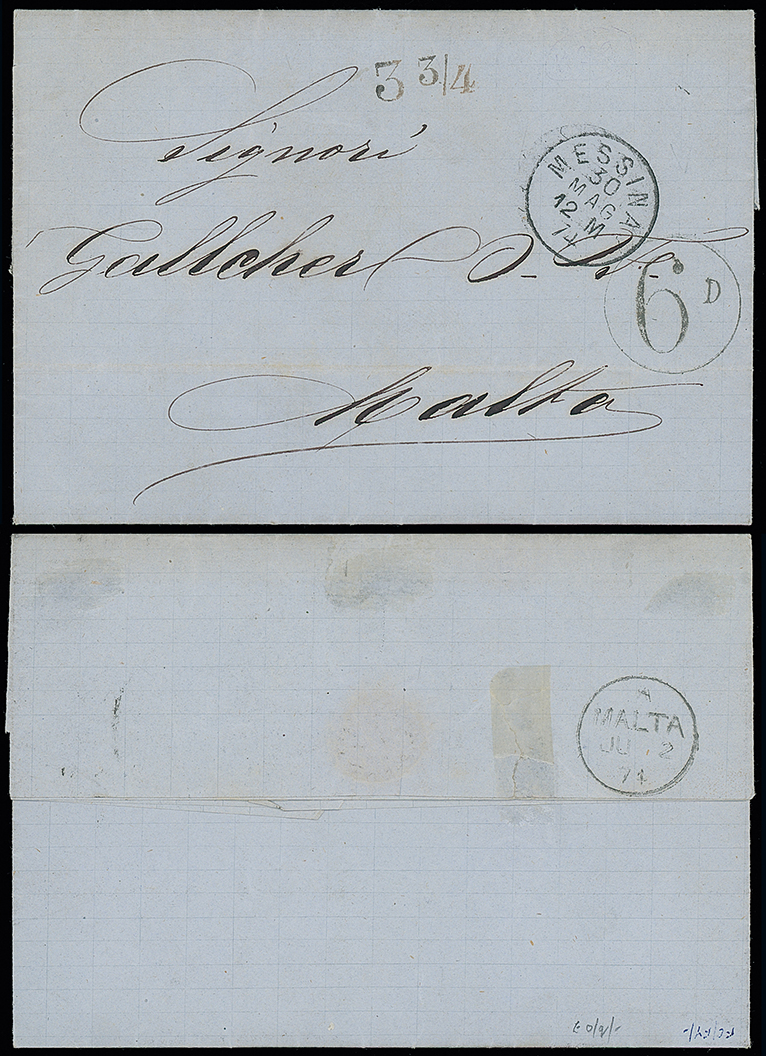 3 3/4
Signori
MESSINA
30
MAG
12 M
74
Gallcher
6 D
Malta
A
MALTA
JU 2
74